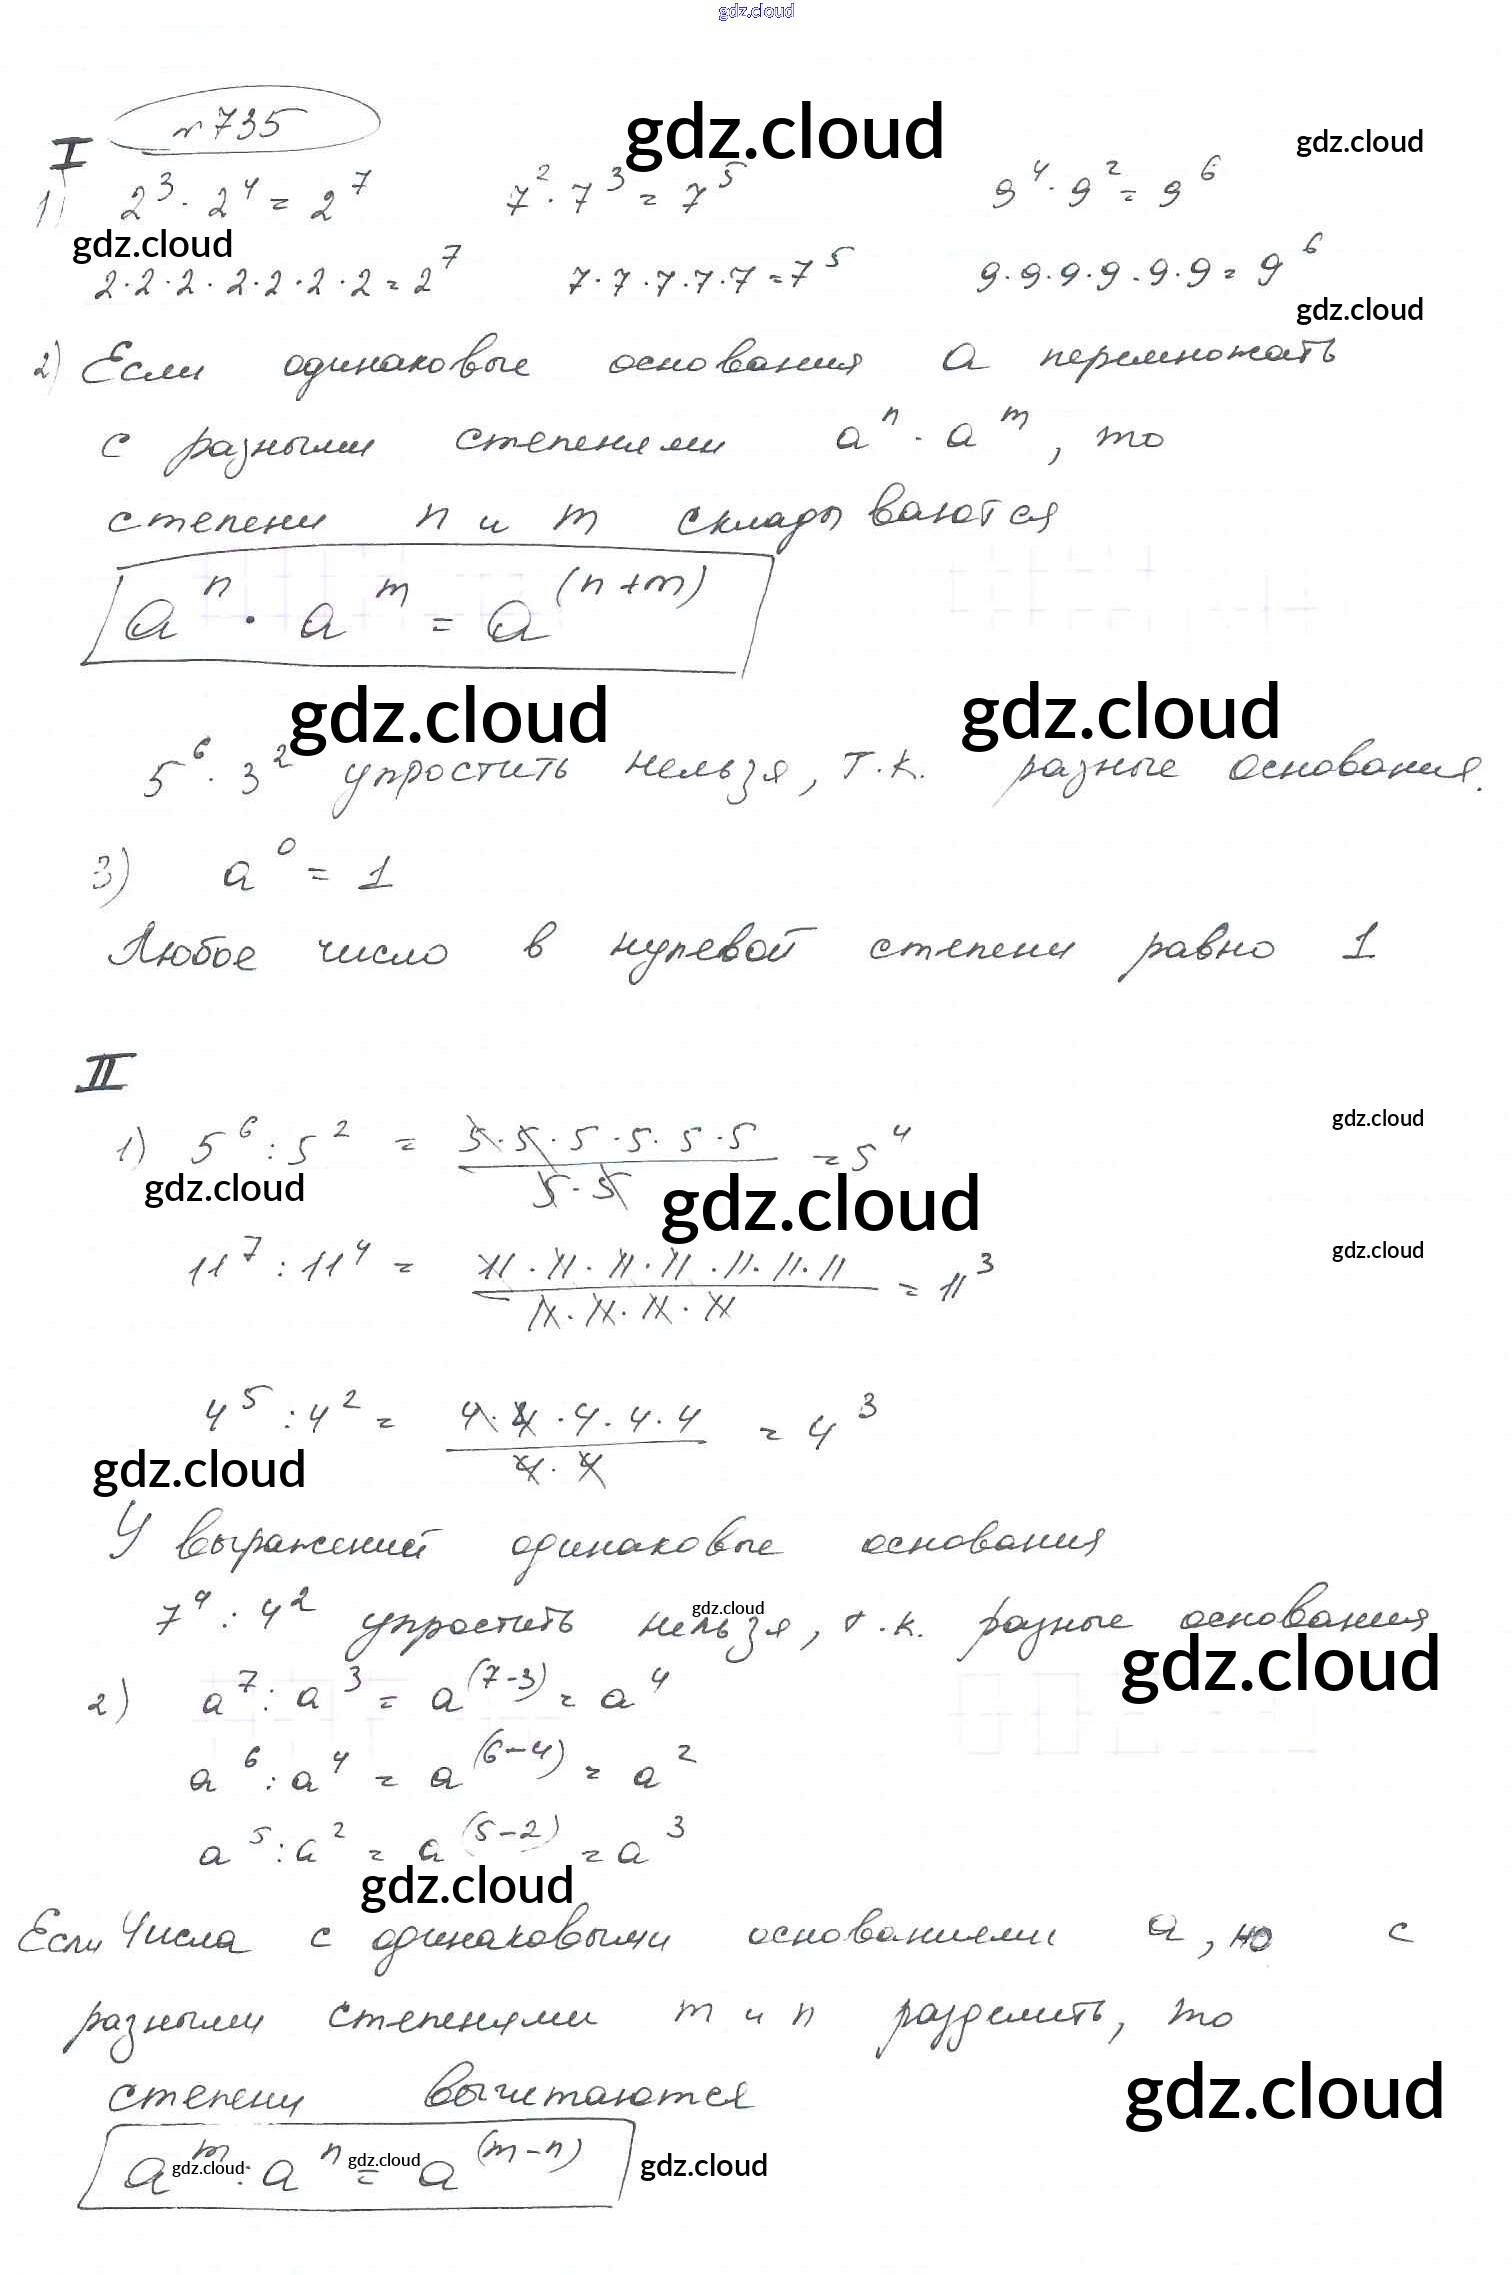 gdz.cloud
№735
gdz.cloud gdz.cloud
I
1) 2³ · 2⁴ = 2⁷ 7² · 7³ = 7⁵ 9⁴ · 9² = 9⁶
gdz.cloud
2·2·2·2·2·2·2 = 2⁷ 7·7·7·7·7 = 7⁵ 9·9·9·9·9·9 = 9⁶
gdz.cloud
2) Если одинаковые основания a перемножать
с разными степенями aⁿ · aᵐ, то
степени n и m складываются
aⁿ · aᵐ = a⁽ⁿ⁺ᵐ⁾
gdz.cloud gdz.cloud
5⁶ · 3² упростить нельзя, т.к. разные основания.
3) a⁰ = 1
Любое число в нулевой степени равно 1
II
gdz.cloud
1) 5⁶ : 5² = (5·5·5·5·5·5)/(5·5) = 5⁴
gdz.cloud gdz.cloud
gdz.cloud
11⁷ : 11⁴ = (11·11·11·11·11·11·11)/(11·11·11·11) = 11³
4⁵ : 4² = (4·4·4·4·4)/(4·4) = 4³
gdz.cloud
У выражений одинаковые основания
gdz.cloud
7⁴ : 4² упростить нельзя, т.к. разные основания
gdz.cloud
2) a⁷ : a³ = a⁽⁷⁻³⁾ = a⁴
a⁶ : a⁴ = a⁽⁶⁻⁴⁾ = a²
a⁵ : a² = a⁽⁵⁻²⁾ = a³
gdz.cloud
Если числа с одинаковыми основаниями a, но с
разными степенями m и n разделить, то
степени вычитаются
gdz.cloud
aᵐ : aⁿ = a⁽ᵐ⁻ⁿ⁾
gdz.cloud gdz.cloud gdz.cloud